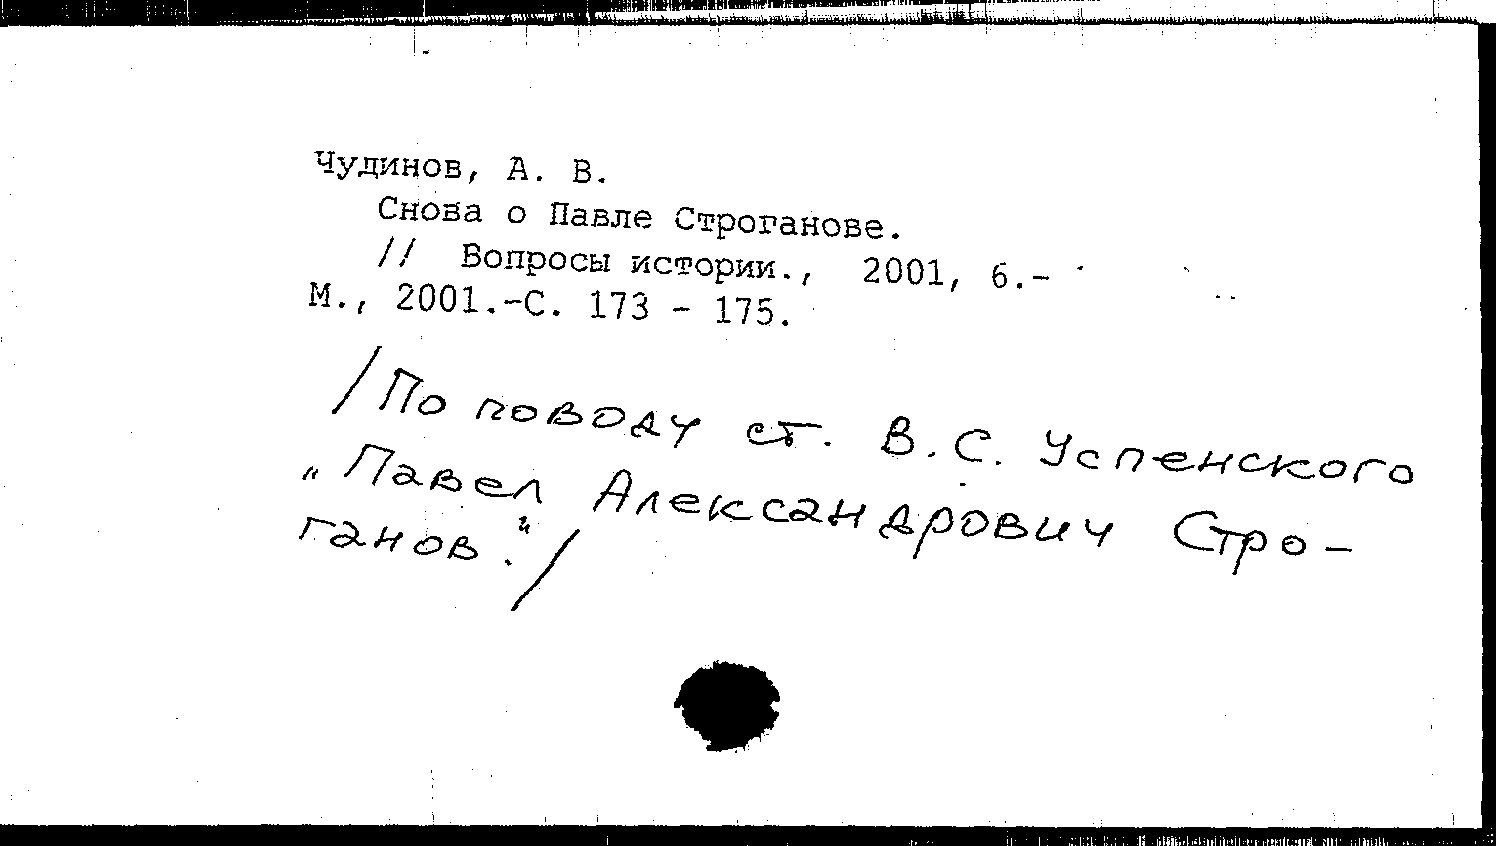 Чудинов, А. В.
Снова о Павле Строганове.
// Вопросы истории., 2001, 6.-
М., 2001.-С. 173 - 175.
/По поводу ст. В.С. Успенского
„Павел Александрович Стро-
ганов."/